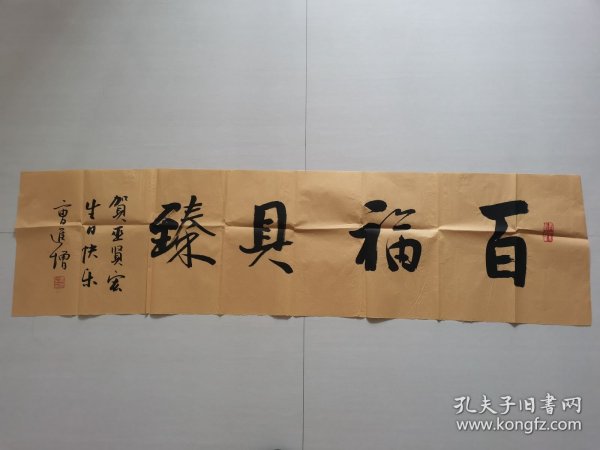 百福具臻
贺亚贤宏
生日快乐
曹进增
孔夫子旧书网
www.kongfz.com